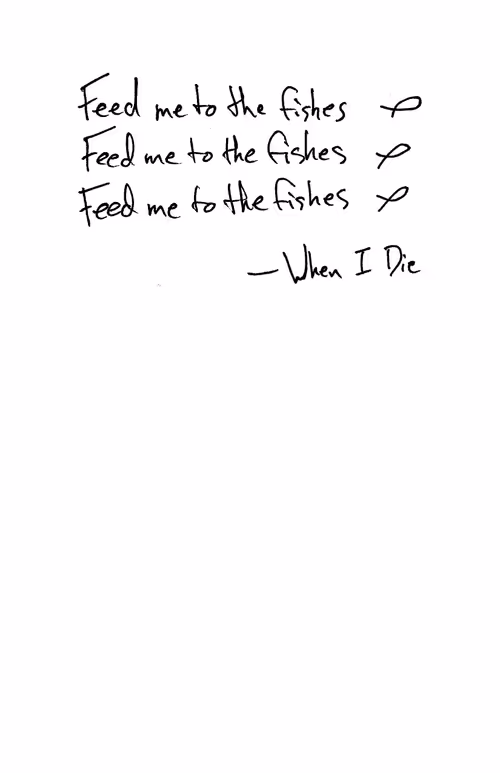 Feed me to the fishes
Feed me to the fishes
Feed me to the fishes
— When I Die